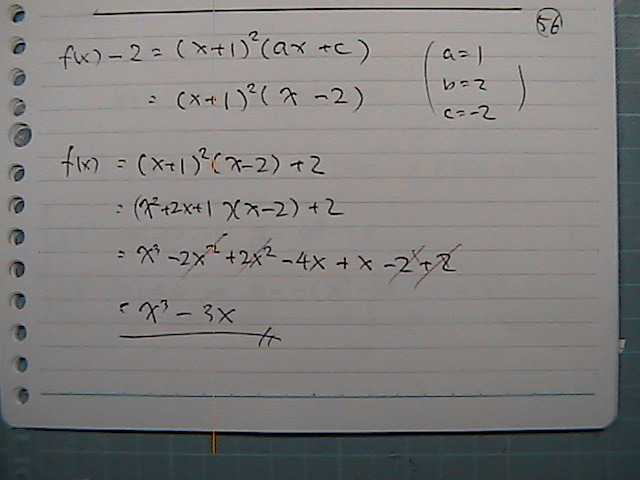 56
f(x) - 2 = (x+1)²(ax+c) (a=1
= (x+1)²(x-2) b=2
c=-2)
f(x) = (x+1)²(x-2)+2
= (x²+2x+1)(x-2)+2
= x³-2x²+2x²-4x+x-2+2
= x³-3x